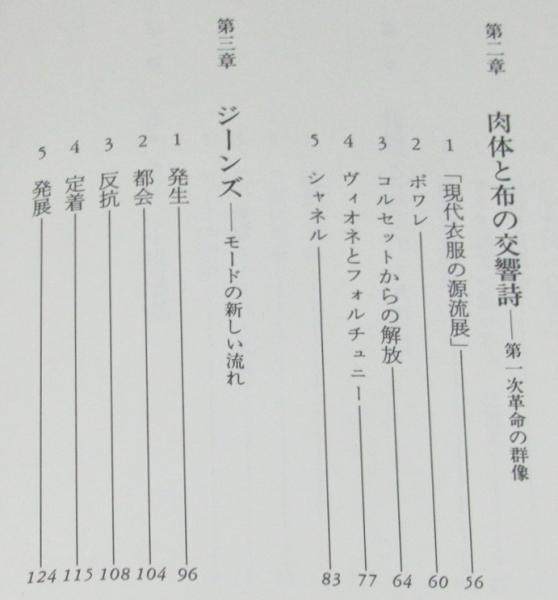 第二章 肉体と布の交響詩―第一次革命の群像
1 「現代衣服の源流展」 56
2 ポワレ 60
3 コルセットからの解放 64
4 ヴィオネとフォルチュニー 77
5 シャネル 83
第三章 ジーンズ―モードの新しい流れ
1 発生 96
2 都会 104
3 反抗 108
4 定着 115
5 発展 124